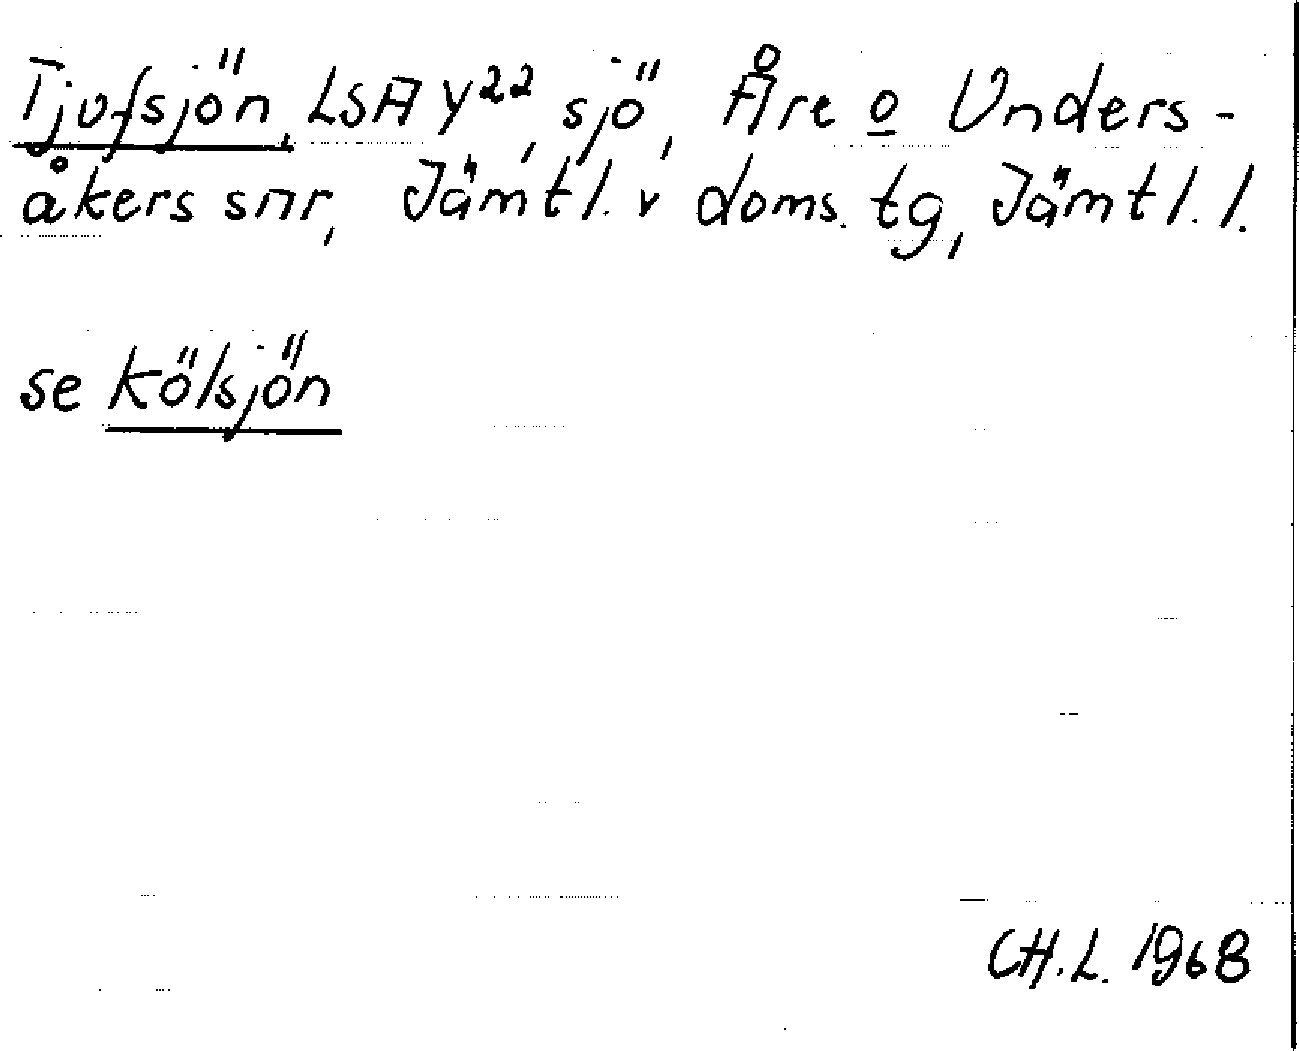 Tjufsjön, LSA Y²², sjö, Åre o Unders-
åkers snr, Jämtl. v doms. tg, Jämtl. l.
se Kölsjön
CH.L. 1968